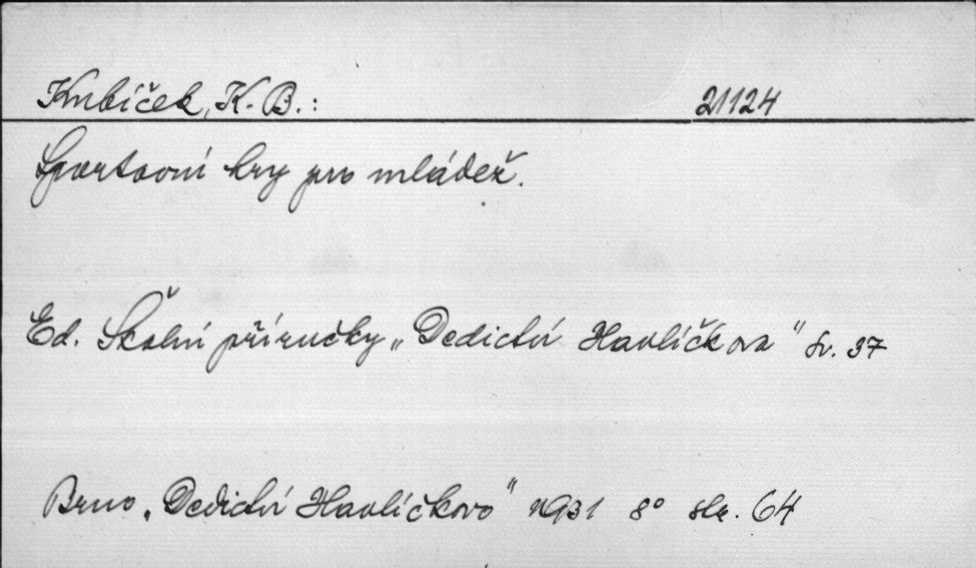 Kubíček, K. B.: 21124
Sportovní hry pro mládež.
Ed. Školní příručky „Dedictví Havlíčkova" sv. 37
Brno „Dedictví Havlíčkovo" 1931 8° str. 64